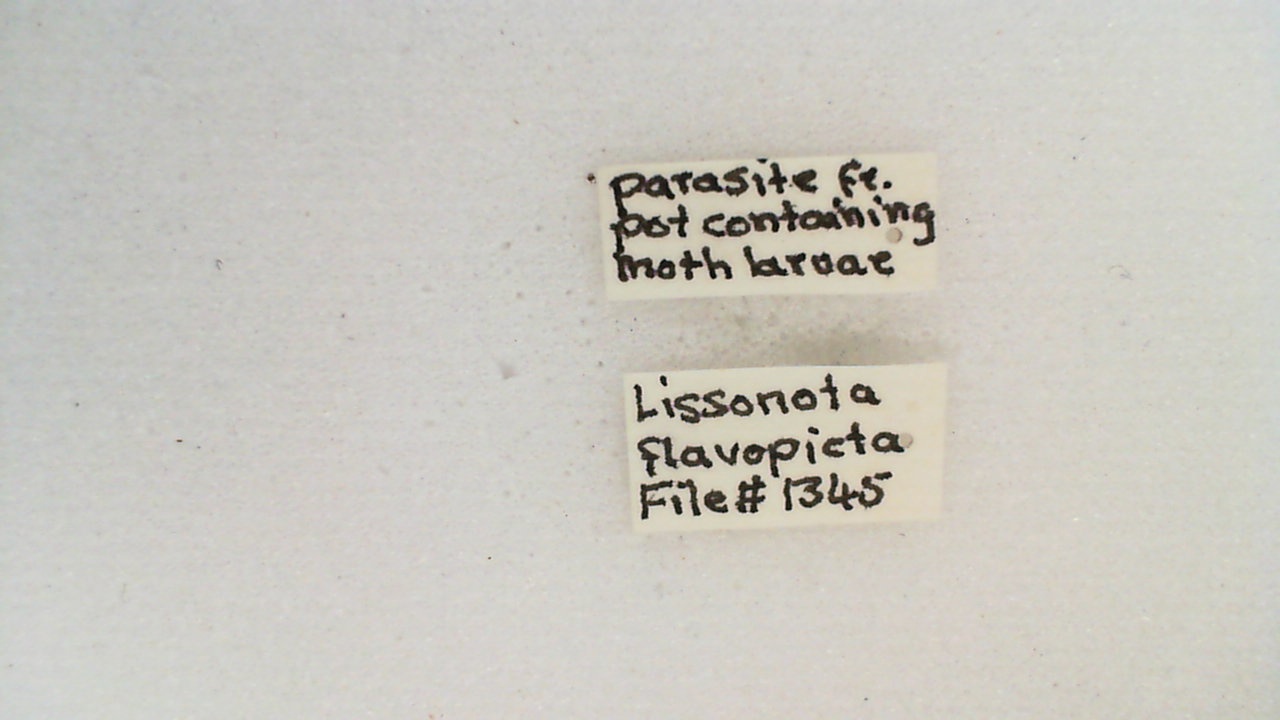 parasite fr.
pot containing
moth larvae
Lissonota
flavopicta
File# 1345